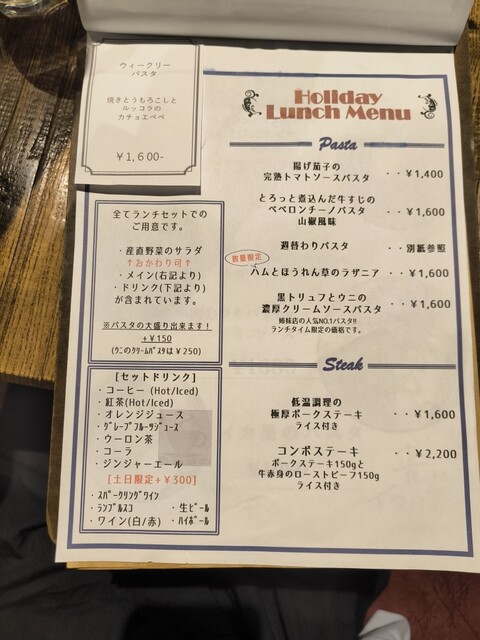 ウィークリー
パスタ
焼きとうもろこしと
ルッコラの
カチョエペペ
￥1,600-
Holiday
Lunch Menu
Pasta
揚げ茄子の
完熟トマトソースパスタ ・・￥1,400
とろっと煮込んだ牛すじの
ペペロンチーノパスタ ・・￥1,600
山椒風味
週替わりパスタ ・・別紙参照
数量限定
ハムとほうれん草のラザニア ・・￥1,600
黒トリュフとウニの
濃厚クリームソースパスタ ・・￥1,600
姉妹店の人気NO.1パスタ!!
ランチタイム限定の価格です。
Steak
低温調理の
極厚ポークステーキ ・・￥1,600
ライス付き
コンボステーキ ・・￥2,200
ポークステーキ150gと
牛赤身のローストビーフ150g
ライス付き
全てランチセットでの
ご用意です。
・産直野菜のサラダ
↑おかわり可↑
・メイン(右記より)
・ドリンク(下記より)
が含まれています。
※パスタの大盛り出来ます！
+￥150
(ウニのクリームパスタは￥250)
[セットドリンク]
・コーヒー (Hot/Iced)
・紅茶(Hot/Iced)
・オレンジジュース
・グレープフルーツジュース
・ウーロン茶
・コーラ
・ジンジャーエール
[土日限定+￥300]
・スパークリングワイン
・ランブルスコ ・生ビール
・ワイン(白/赤) ・ハイボール